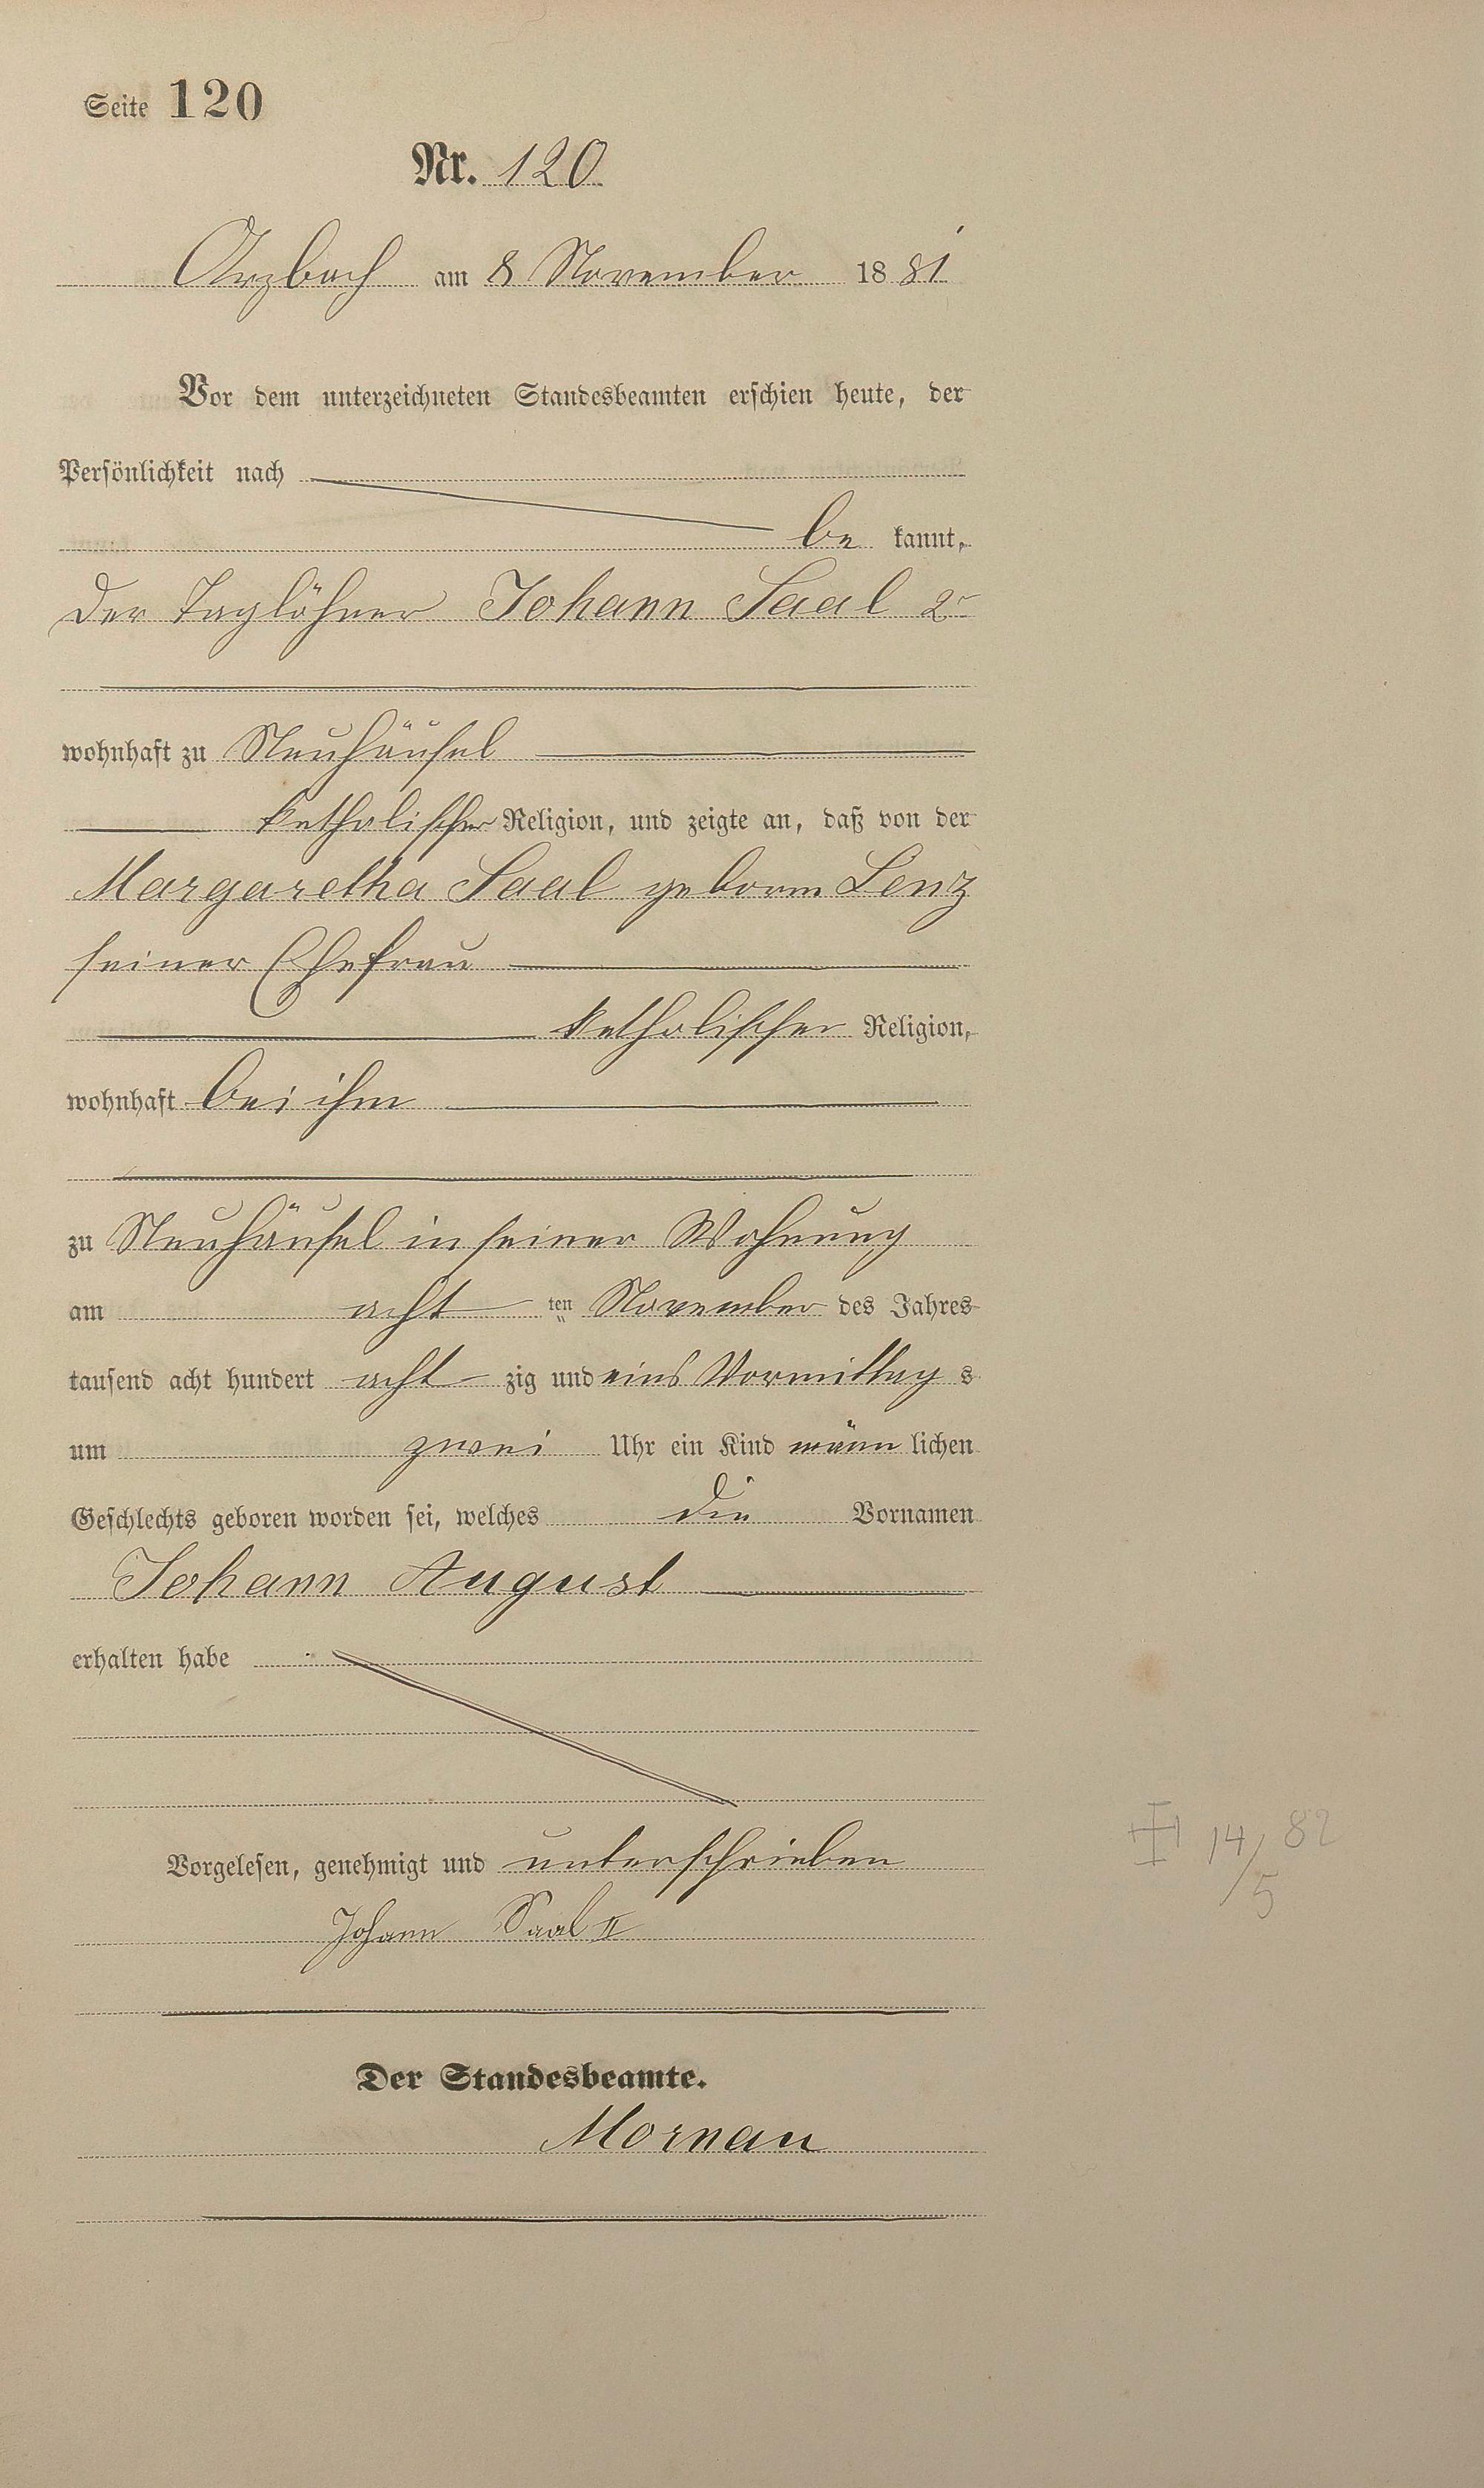 Seite 120
Nr. 120
Arzbach am 8 November 1881
Vor dem unterzeichneten Standesbeamten erschien heute, der
Persönlichkeit nach
be kannt,
der Taglöhner Johann Saal 2r
wohnhaft zu Neuhäusel
katholischer Religion, und zeigte an, daß von der
Margaretha Saal geboren Lenz
seiner Ehefrau
katholischer Religion,
wohnhaft bei ihm
zu Neuhäusel in seiner Wohnung
am acht ten November des Jahres
tausend acht hundert acht zig und eins Vormittag s
um zwei Uhr ein Kind männ lichen
Geschlechts geboren worden sei, welches die Vornamen
Johann August
erhalten habe
Vorgelesen, genehmigt und unterschrieben
Johann Saal II
Der Standesbeamte.
Mornau
14/5 82